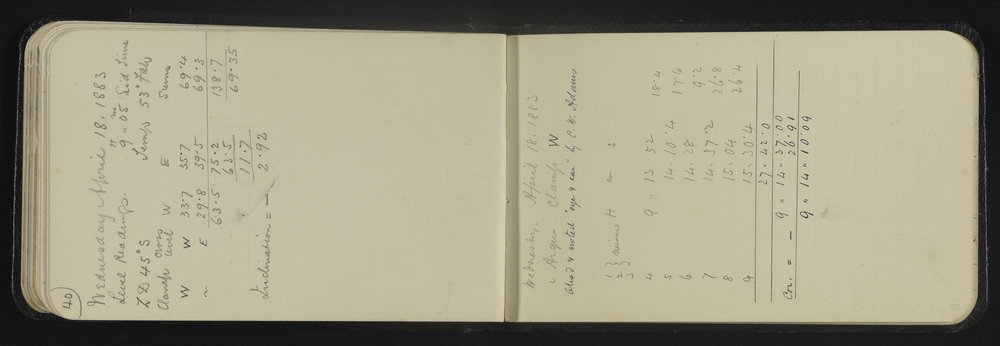 40
Wednesday April 18. 1883
Level Readings. 9h " 05m Sid Time
Z D 45° S Temp 53° Fahr
Clamp Cross level W E Sums
W W 33.7 35.7 69.4
" E 29.8 39.5 69.3
63.5 75.2 138.7
63.5 69.35
11.7
Inclination = - 2.92
Wednesday, April 18. 1883
ι Argus Clamp W
Obsd & noted "eye & ear" by C. W. Adams
1
2 } minus H m s
3
4 9 " 13 52 18.4
5 14 " 10.4 17.6
6 14 " 28 9.2
7 14 " 37.2 26.8
8 15 " 04 26.4
9 15 " 30.4
27 " 42.0
9 " 14 " 37.00
Cor. = - 26.91
9 " 14 " 10.09